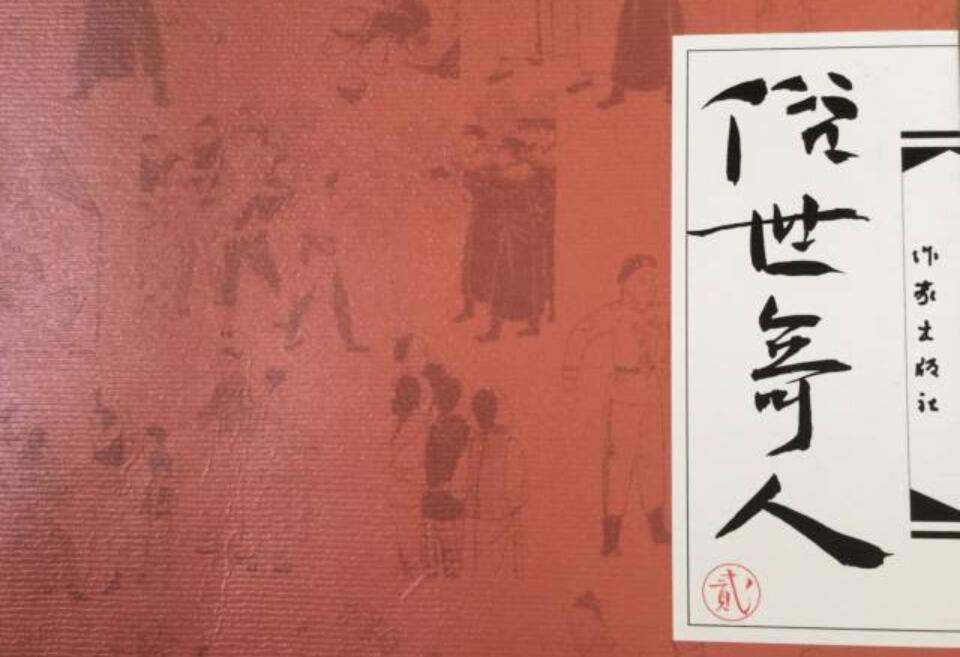 俗世奇人
贰
作家出版社